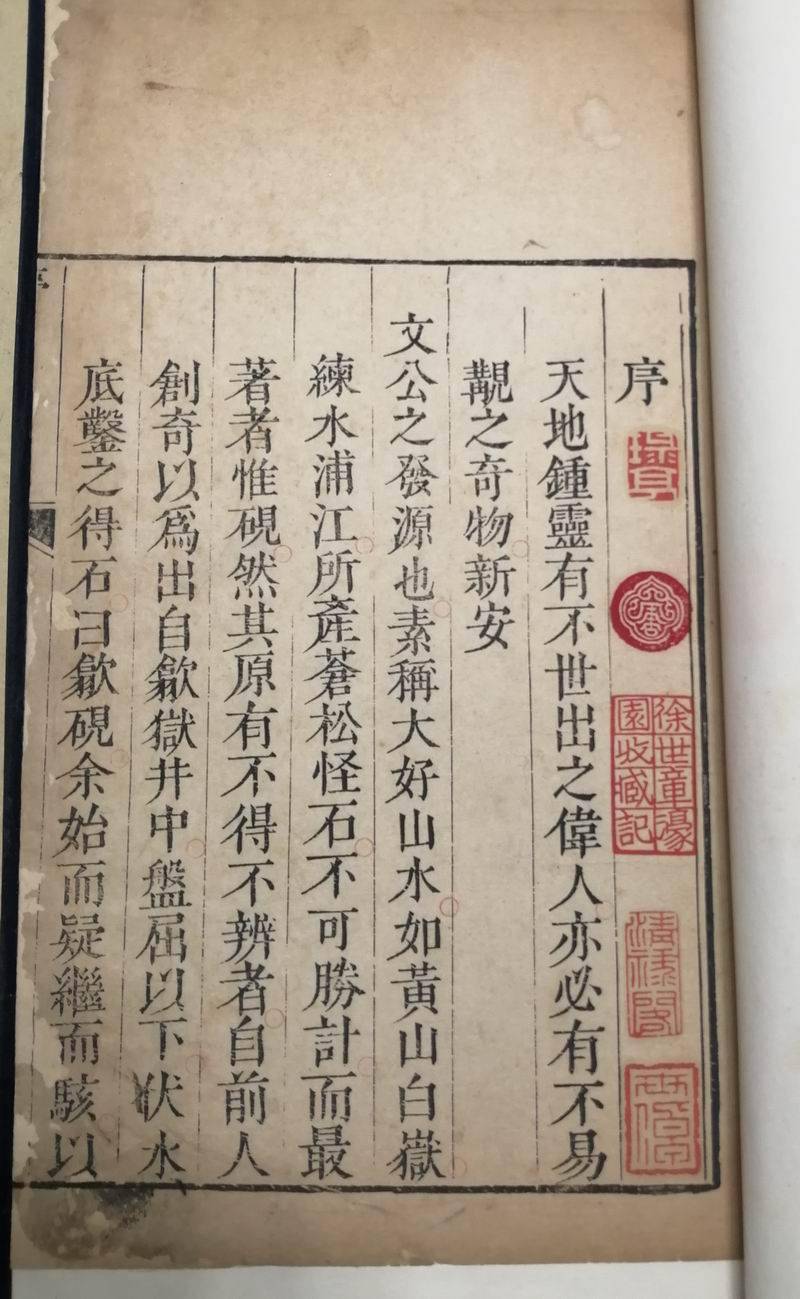 序
徐世章濠
園收藏記
天地鍾靈有不世出之偉人亦必有不易
覯之奇物新安
文公之發源也素稱大好山水如黃山白嶽
練水浦江所產蒼松怪石不可勝計而最
著者惟硯然其原有不得不辨者自前人
創奇以爲出自歙獄井中盤屈以下伏水
底鑿之得石曰歙硯余始而疑繼而駭以